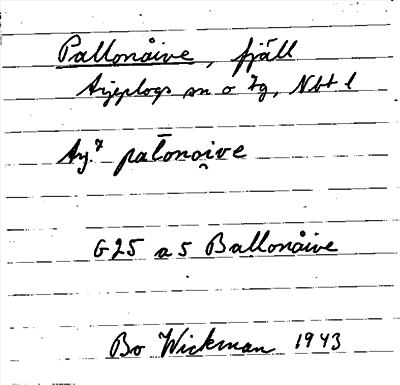 Pallonåive, fjäll
Arjeplogs sn o tg, Nbt l
Arj.
G25 a 5 Ballonåive
Bo Wickman 1943